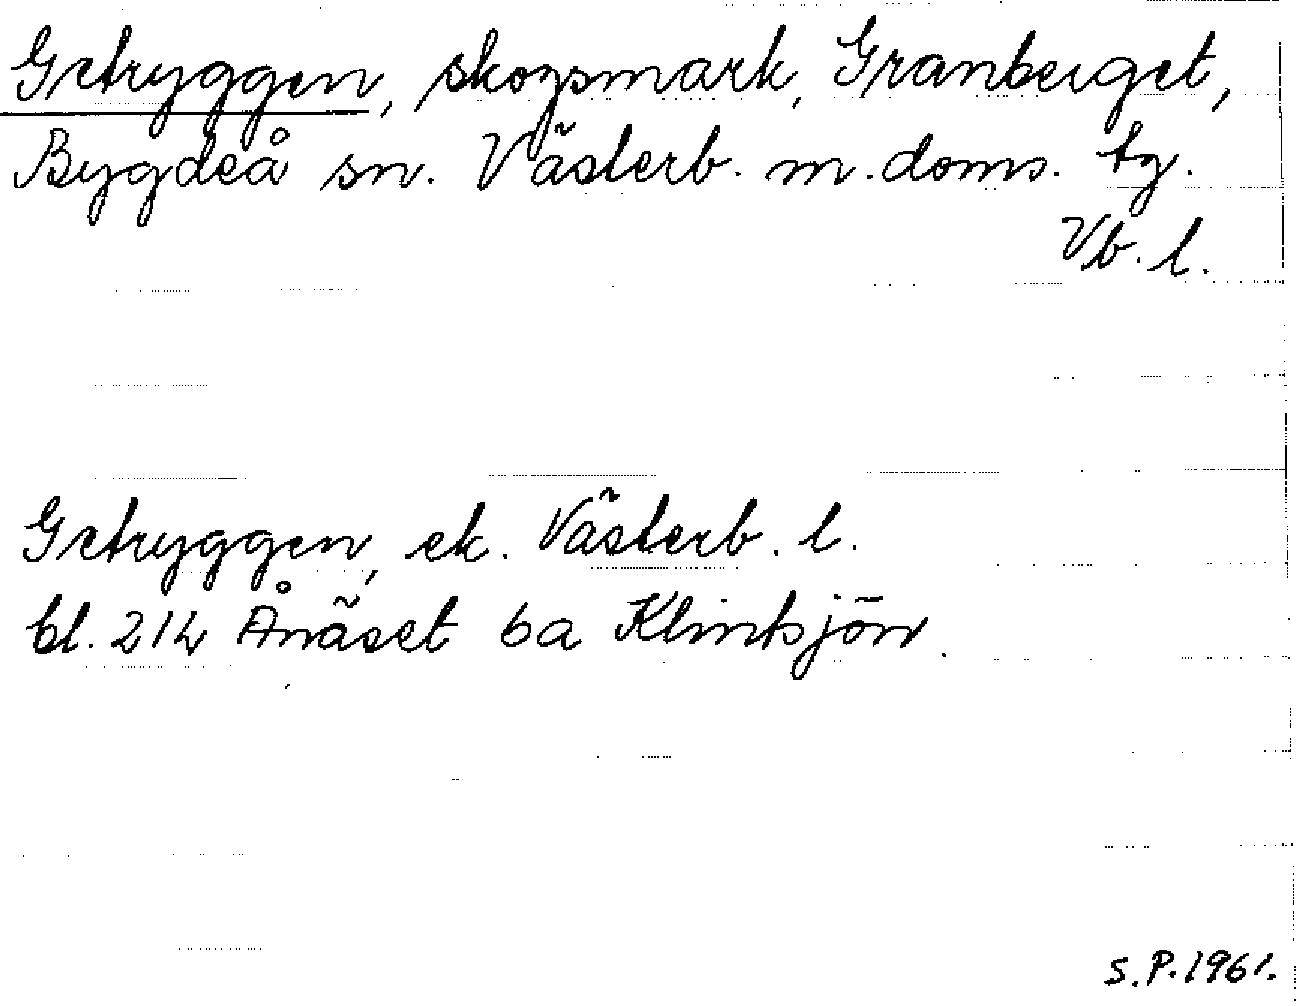 Getryggen, skogsmark, Granberget,
Bygdeå sn. Västerb. m. doms. tg.
Vb. l.
Getryggen, ek. Västerb. l.
bl. 21L Ånäset 6a Klintsjön.
S.P. 1961.